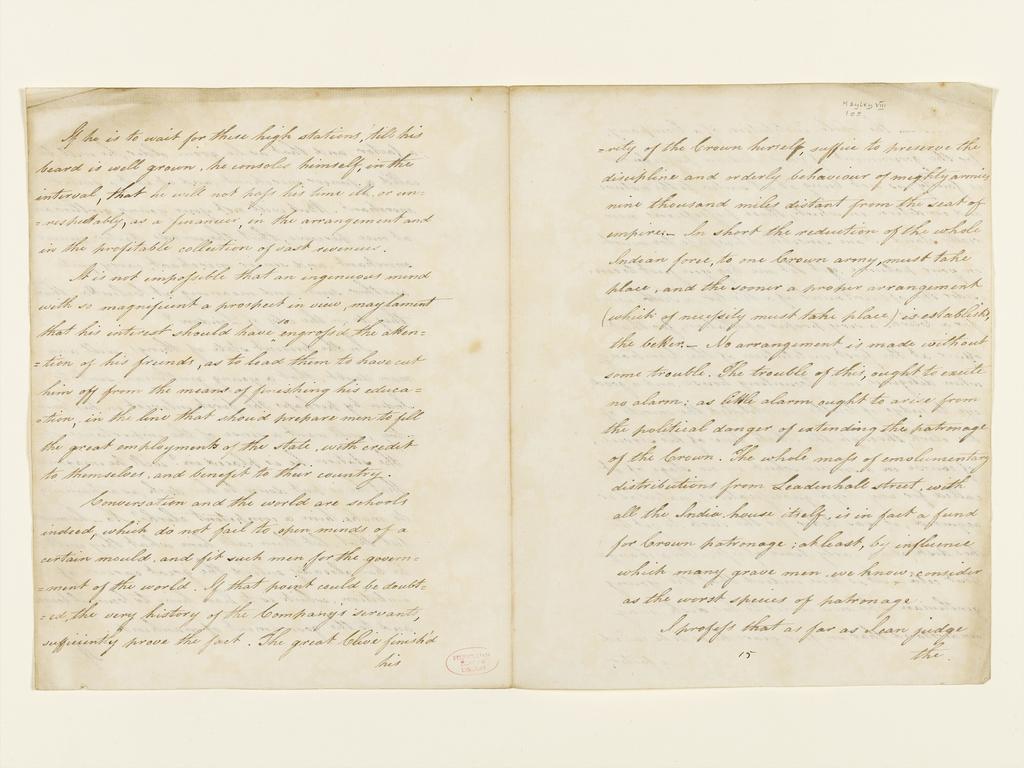 If he is to wait for these high stations, 'till his
beard is well grown, he consoles himself, in the
interval, that he will not pass his time ill, or un=
=respectably, as a financier, in the arrangement and
in the profitable collection of vast revenues.
It is not impossible that an ingenuous mind
with so magnificent a prospect in view, may lament
that his interest should have so ingrossed the atten=
=tion of his friends, as to lead them to have cut
him off from the means of finishing his educa=
=tion, in the line that should prepare men to fill
the great employments of the state, with credit
to themselves, and benefit to their country.
Conversation and the world are schools
indeed, which do not fail to open minds of a
certain mould, and fit such men for the govern=
=ment of the world. If that point could be doubt=
=ed, the very history of the Company's servant,
sufficiently prove the fact. The great Clive finish'd
his
Hayley VIII
=rity of the Crown herself, suffice to preserve the
discipline and orderly behaviour of mighty armies
nine thousand miles distant from the seat of
empire:— In short the reduction of the whole
Indian force, to one Crown army, must take
place, and the sooner a proper arrangement
(which of necessity must take place) is establish'd,
the better.— No arrangement is made without
some trouble. The trouble of this, ought to excite
no alarm: as little alarm ought to arise from
the political danger of extending the patronage
of the Crown. The whole mass of emolumentary
distributions from Leadenhall street, with
all the India house itself, is in fact a fund
for Crown patronage; at least, by influence
which many grave men, we know, consider
as the worst species of patronage
I profess that as far as I can judge
15
the